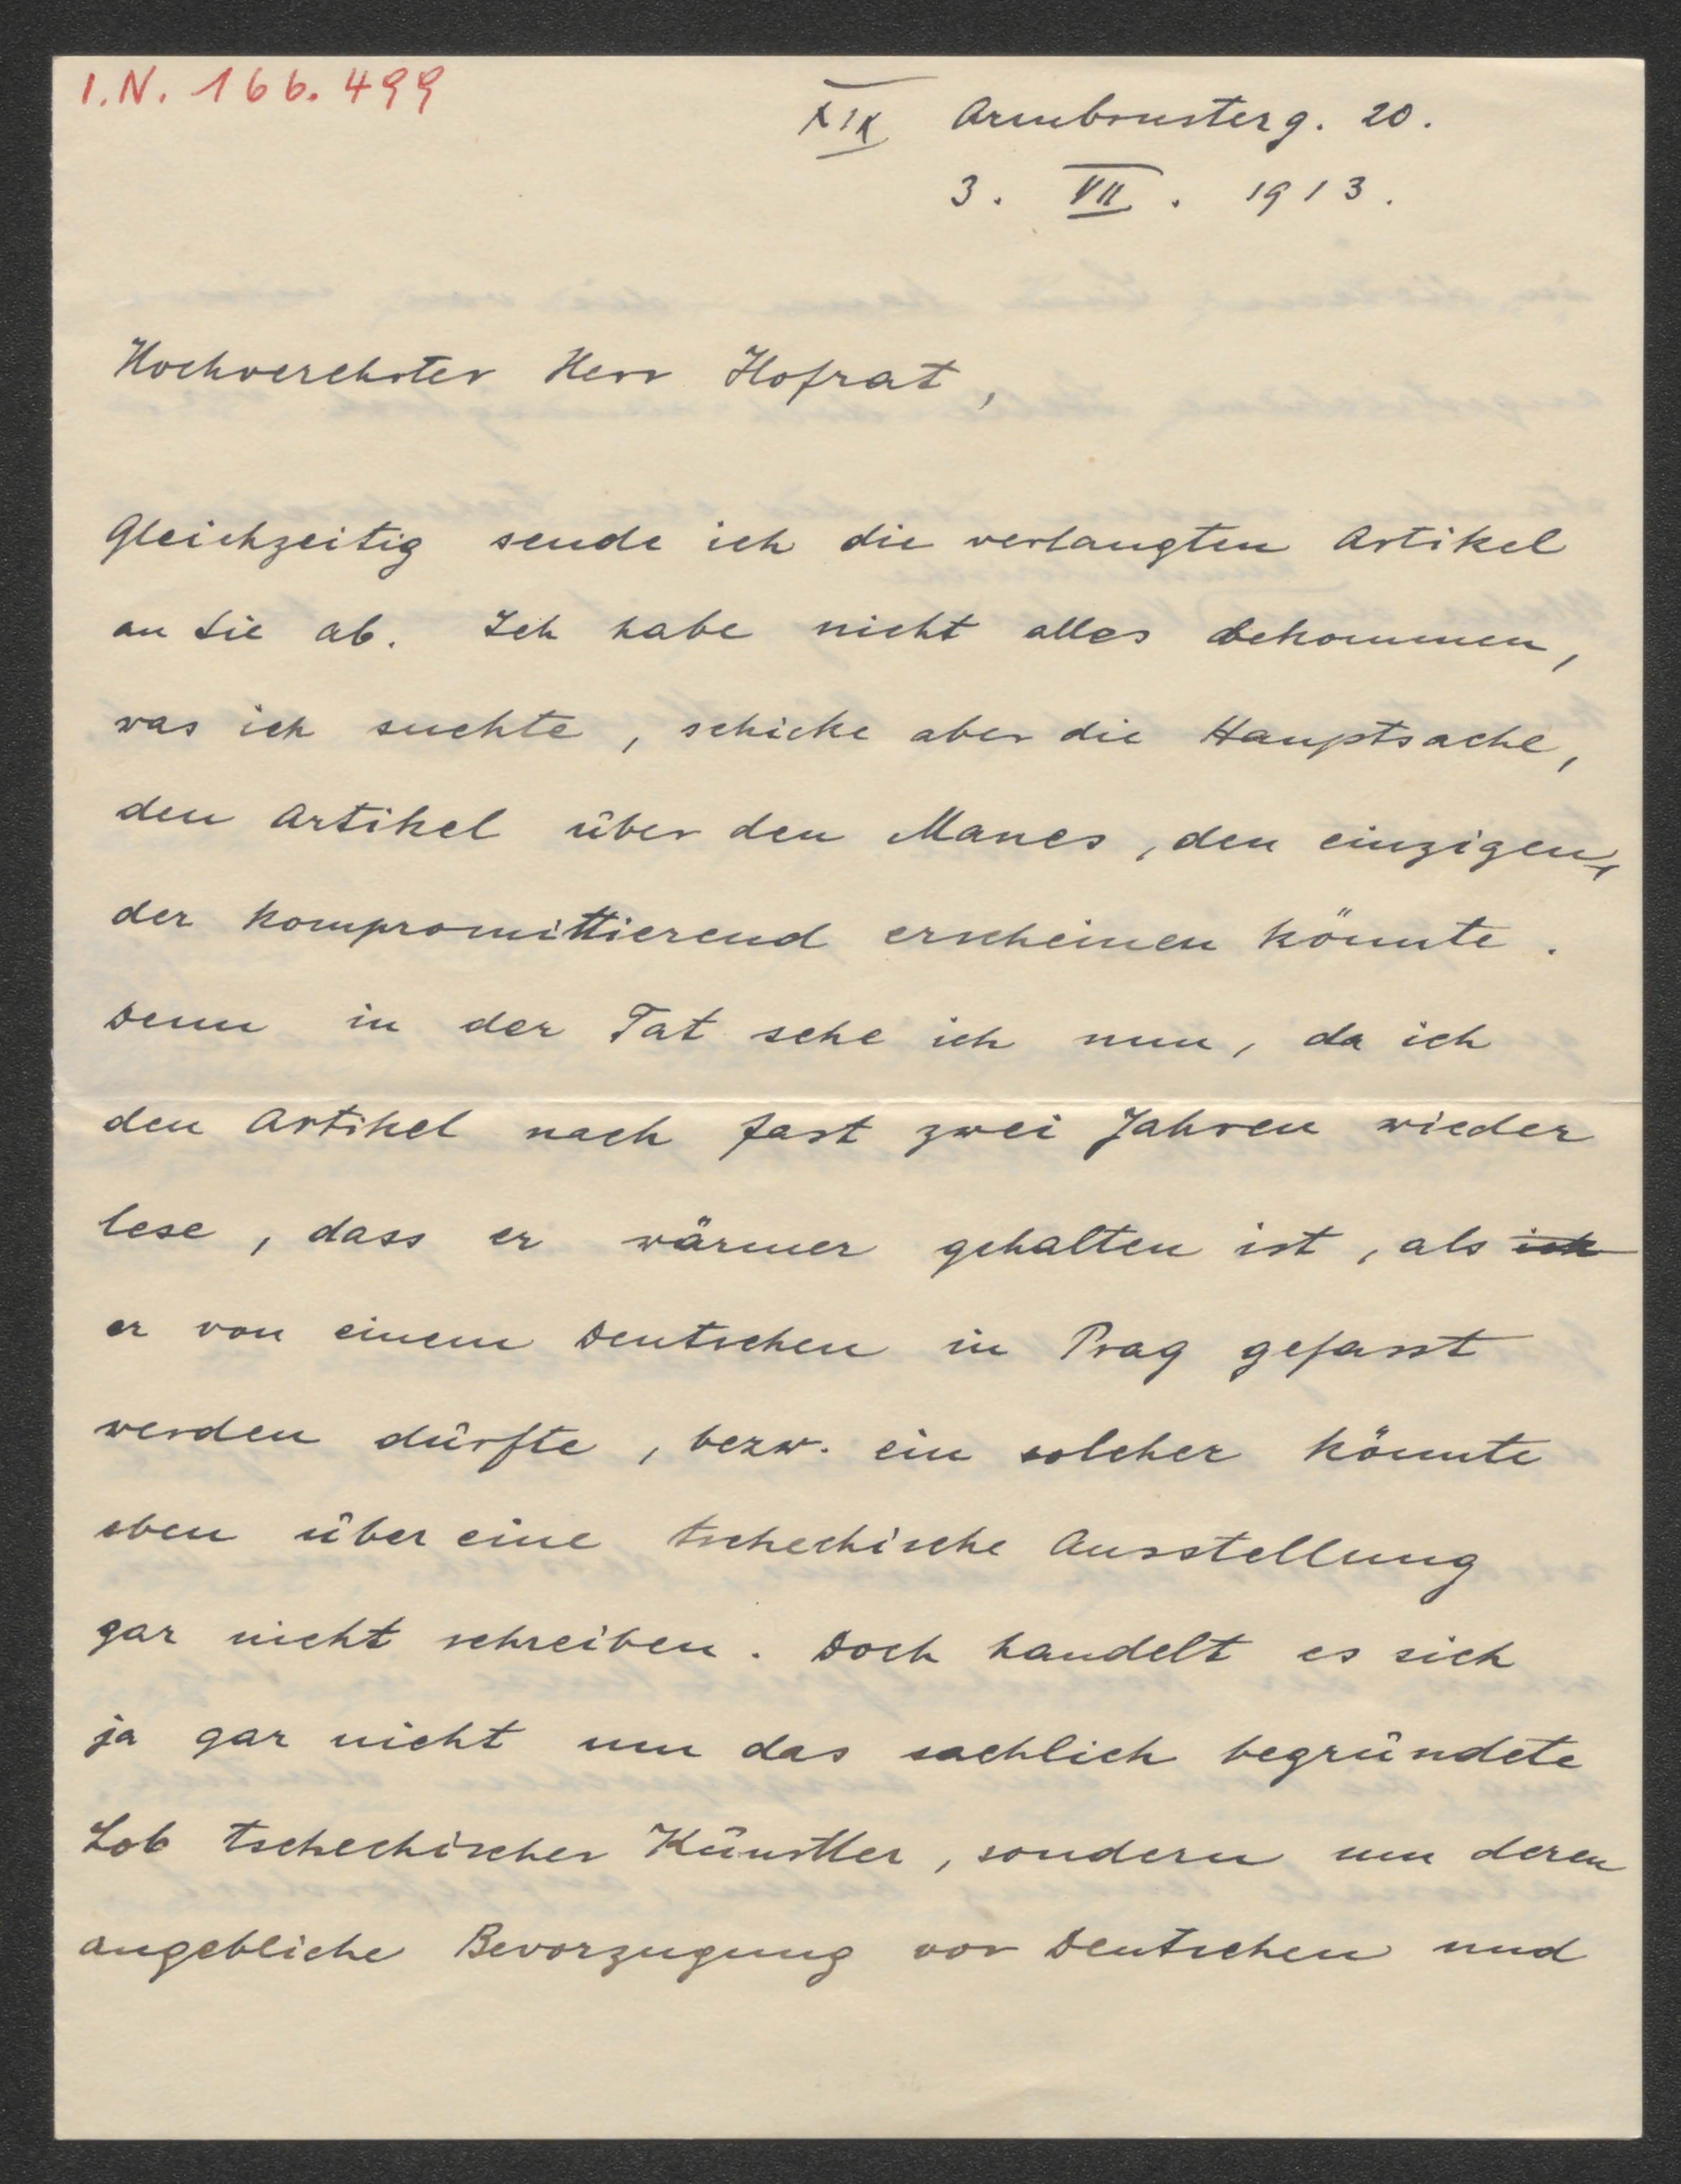 I.N. 166.499
XIX Armbrusterg. 20.
3. VII. 1913.
Hochverehrter Herr Hofrat,
Gleichzeitig sende ich die verlangten Artikel
an Sie ab. Ich habe nicht alles bekommen,
was ich suchte, schicke aber die Hauptsache,
den Artikel über den Manes, den einzigen,
der kompromittierend erscheinen könnte.
Denn in der Tat sehe ich nun, da ich
den Artikel nach fast zwei Jahren wieder
lese, dass er wärmer gehalten ist, als ich
er von einem Deutschen in Prag gefasst
werden dürfte, bezw. ein solcher könnte
eben über eine tschechische Ausstellung
gar nicht schreiben. Doch handelt es sich
ja gar nicht um das sachlich begründete
Lob tschechischer Künstler, sondern um deren
angebliche Bevorzugung vor Deutschen und